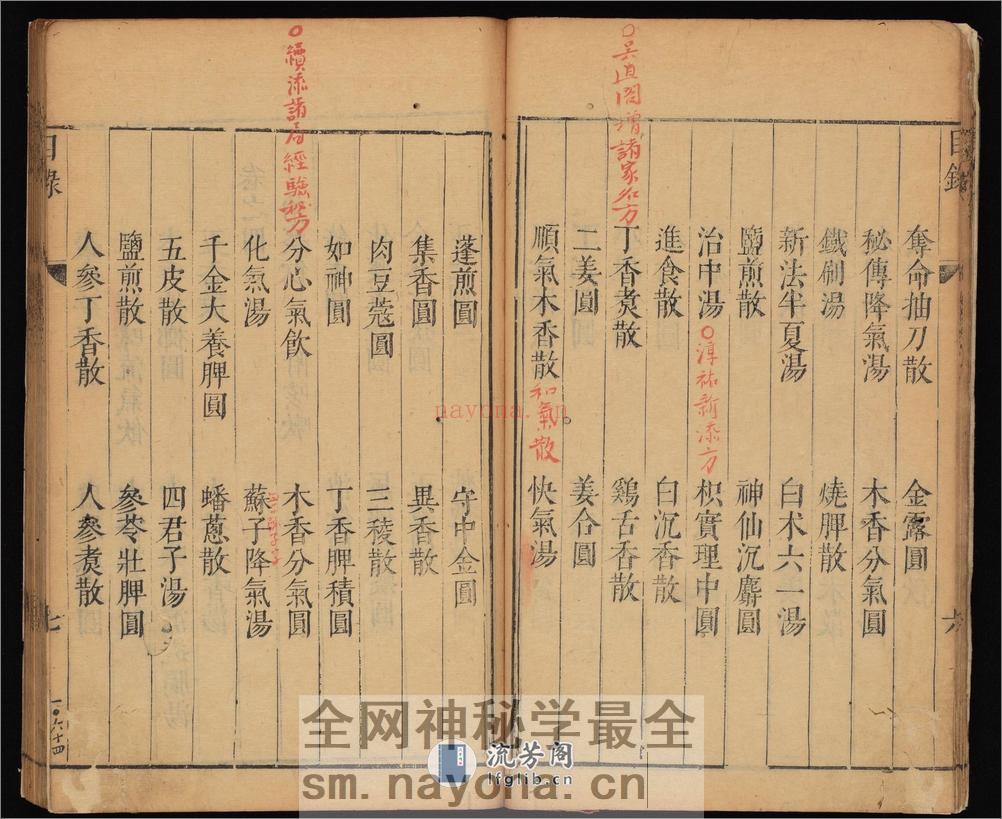 ○吳直閣增諸家名方
目錄
奪命抽刀散 金露圓
秘傳降氣湯 木香分氣圓
鐵刷湯 燒脾散
新法半夏湯 白朮六一湯
鹽煎散 神仙沉麝圓
治中湯 ○淳祐新添方 枳實理中圓
進食散 白沉香散
丁香煑散 鷄舌香散
二姜圓 姜合圓
順氣木香散 和氣散 快氣湯
六
○續添諸局經驗秘方
蓬煎圓 守中金圓
集香圓 異香散
肉豆蔻圓 三稜散
如神圓 丁香脾積圓
分心氣飲 木香分氣圓
化氣湯 蘇子降氣湯
千金大養脾圓 蟠蔥散
五皮散 四君子湯
鹽煎散 參苓壯脾圓
人參丁香散 人參煑散
目錄
七
一〇六十四
nayona.cn
全网神秘学最全
流芳阁
lfglib.cn
sm.nayona.cn